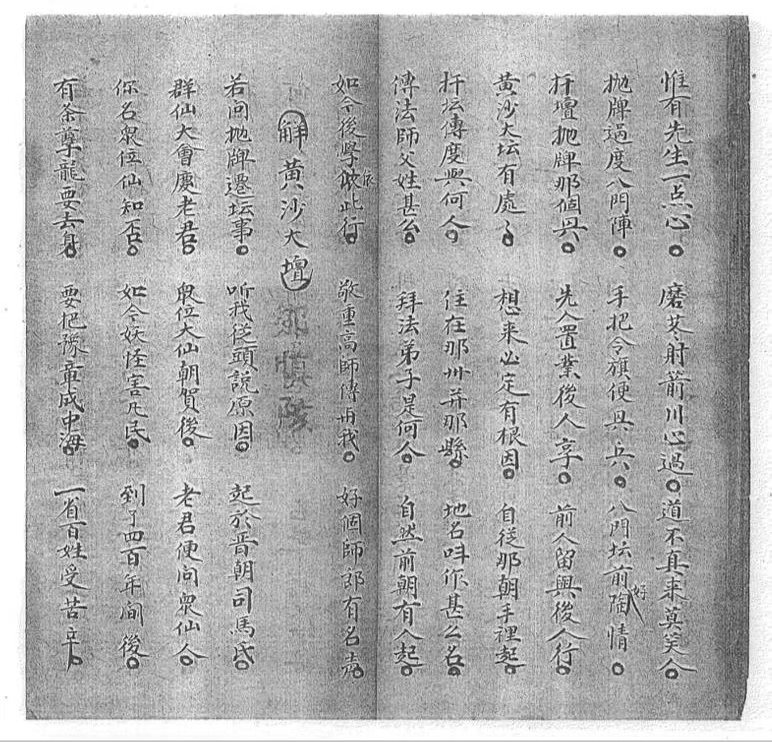 惟有先生一点心。磨芠射箭川心過。道不真來莫笑人。
抛牌過度八門陣。手把令旗便興兵。八門坛前好陶情。
扦壇抛牌那個興。先人置業後人享。前人留與後人行。
黄沙大坛有處了。想來必定有根因。自從那朝手裡起。
扦坛傳度與何人。住在那州并那縣。地名呌作甚么名。
傳法師父姓甚么。拜法弟子是何人。自然前朝有人起。
如今後學依此行。敬重高師傳冉我。好個師郎有名声。
解黄沙大壇
若问抛牌遷坛事。听我從頭説原因。起於晋朝司馬氏。
群仙大會慶老君。衆位大仙朝賀後。老君便问衆仙人。
你名衆位仙知否。如今妖怪害凡民。到了四百年间後。
有条孽龍要去身。要把豫章成中海。一省百姓受苦辛。